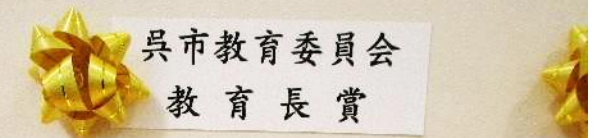 呉市教育委員会
教育長賞